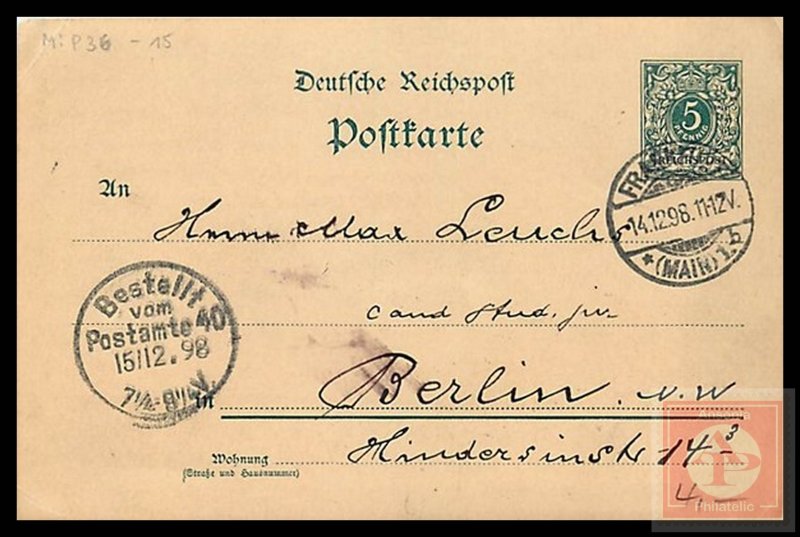 Mi P36 - 15
Deutsche Reichspost
Postkarte
5
PFENNIG
REICHSPOST
FRANKFURT
14.12.98.11-12V.
* (MAIN) 1.b
An
Herrn Max Leuchs
Bestellt
vom
Postamte 40
15/12.98
7½-8½V.
cand stud. jur
in Berlin. N.W
Hindersinstr 14 3
Wohnung
(Straße und Hausnummer)
4,—
Philatelic